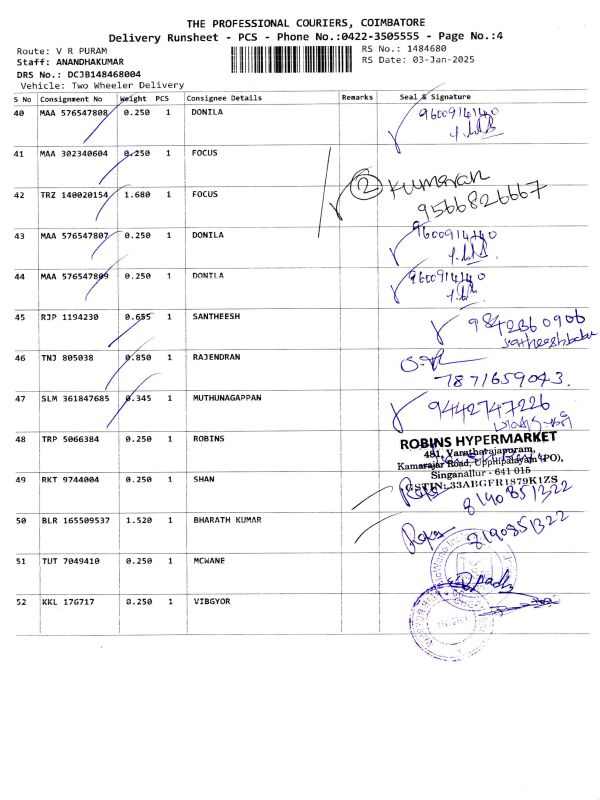 THE PROFESSIONAL COURIERS, COIMBATORE
Delivery Runsheet - PCS - Phone No.:0422-3505555 - Page No.:4
Route: V R PURAM
RS No.: 1484680
Staff: ANANDHAKUMAR
RS Date: 03-Jan-2025
DRS No.: DCJB148468004
Vehicle: Two Wheeler Delivery
S No Consignment No Weight PCS Consignee Details Remarks Seal & Signature
40 MAA 576547808 0.250 1 DONILA 9600914140
41 MAA 302340604 0.250 1 FOCUS
2 Kumaran
42 TRZ 140020154 1.680 1 FOCUS 9566826667
43 MAA 576547807 0.250 1 DONILA 9600914140
44 MAA 576547809 0.250 1 DONILA 9600914140
45 RJP 1194230 0.655 1 SANTHEESH 9842360906
46 TNJ 805038 0.850 1 RAJENDRAN
7871659043.
47 SLM 361847685 0.345 1 MUTHUNAGAPPAN 9442747226
48 TRP 5066384 0.250 1 ROBINS ROBINS HYPERMARKET
481, Varatharajapuram,
Kamarajar Road, Upplipalayam (PO),
Singanallur - 641 015
49 RKT 9744004 0.250 1 SHAN GSTIN: 33ABGFR1879K1ZS
8190851322
50 BLR 165509537 1.520 1 BHARATH KUMAR 8190851322
51 TUT 7049410 0.250 1 MCWANE
52 KKL 176717 0.250 1 VIBGYOR